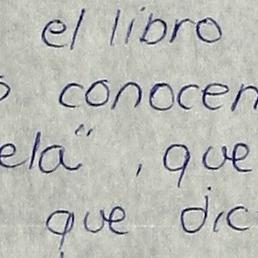 el libro
o conocen
ela", que
que dic